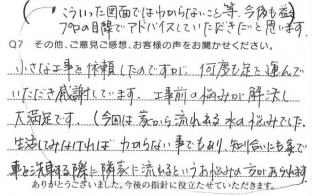 (こういった図面ではわからないこと等、今後も
プロの目線でアドバイスしていただきたいと思います。
Q7 その他、ご意見ご感想、お客様の声をお聞かせください。
小さな工事を依頼したのですが、何度も足を運んで
いただき感謝しています。工事前の悩みが解決し
大満足です。(今回は家から流れる水の悩みでした。
生活してみなければわからない事でもあり、知り合いにも家で
車を洗車する際に隣家に流れるというお悩みの方がおられます。
ありがとうございました。今後の指針に役立たせていただきます。